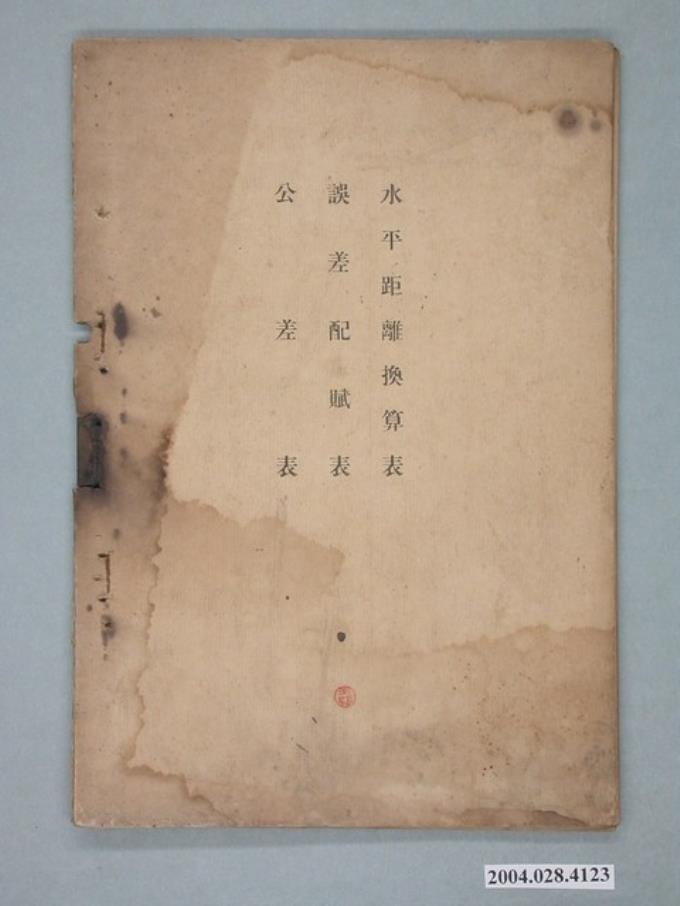 水平距離換算表
誤差配賦表
公差表
2004.028.4123